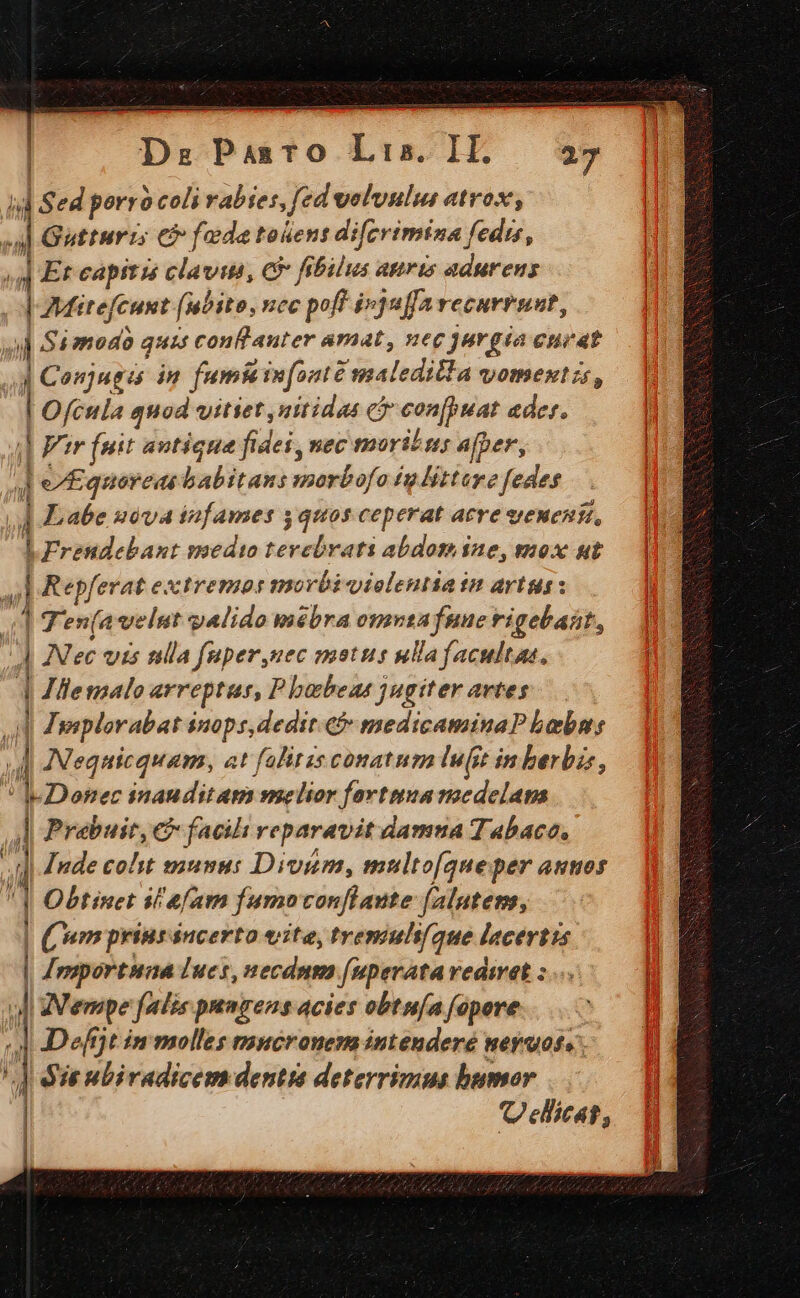 De Pæto Lib. II. 27
Sed porrò coli rabies, sed volvulus atrox,
Gutturis & fœda tollens discrimina sedis,
Et capitis clavus, & sibilus auris adurens
Mitescunt subito, nec post injussa recurrunt,
Si modò quis constanter amat, nec jurgia curat
Conjugis in fumũ insontẽ maledicta vomentis,
Oscula quod vitiet, nitidas & conspuat ædes.
Vir fuit antiqua fidei, nec moribus asper,
Æquoreas habitans morboso in littore sedes
Labe nova infames; quos ceperat acre venenũ,
Frendebant medio terebrati abdomine, mox ut
Repserat extremos morbi violentia in artus:
Tensa velut valido mẽbra omnia fune rigebant,
Nec vis ulla super, nec motus ulla facultas.
Ille malo arreptus, Phœbeas jugiter artes
Implorabat inops, dedit & medicamina Phœbus
Nequicquam, at solitis conatum lusit in herbis,
Donec inauditam melior fortuna medelam
Præbuit, & facili reparavit damna Tabaco.
Inde colit munus Divûm, multosque per annos
Obtinet illæsam fumo conflante salutem,
Cum prius incerto vitæ, tremulisque lacertis
Importuna lues, necdum superata rediret:
Nempe salis pungens acies obtusa sopore
Desijt in molles mucronem intendere nervos.
Sic ubi radicem dentis deterrimus humor
Vellicat,